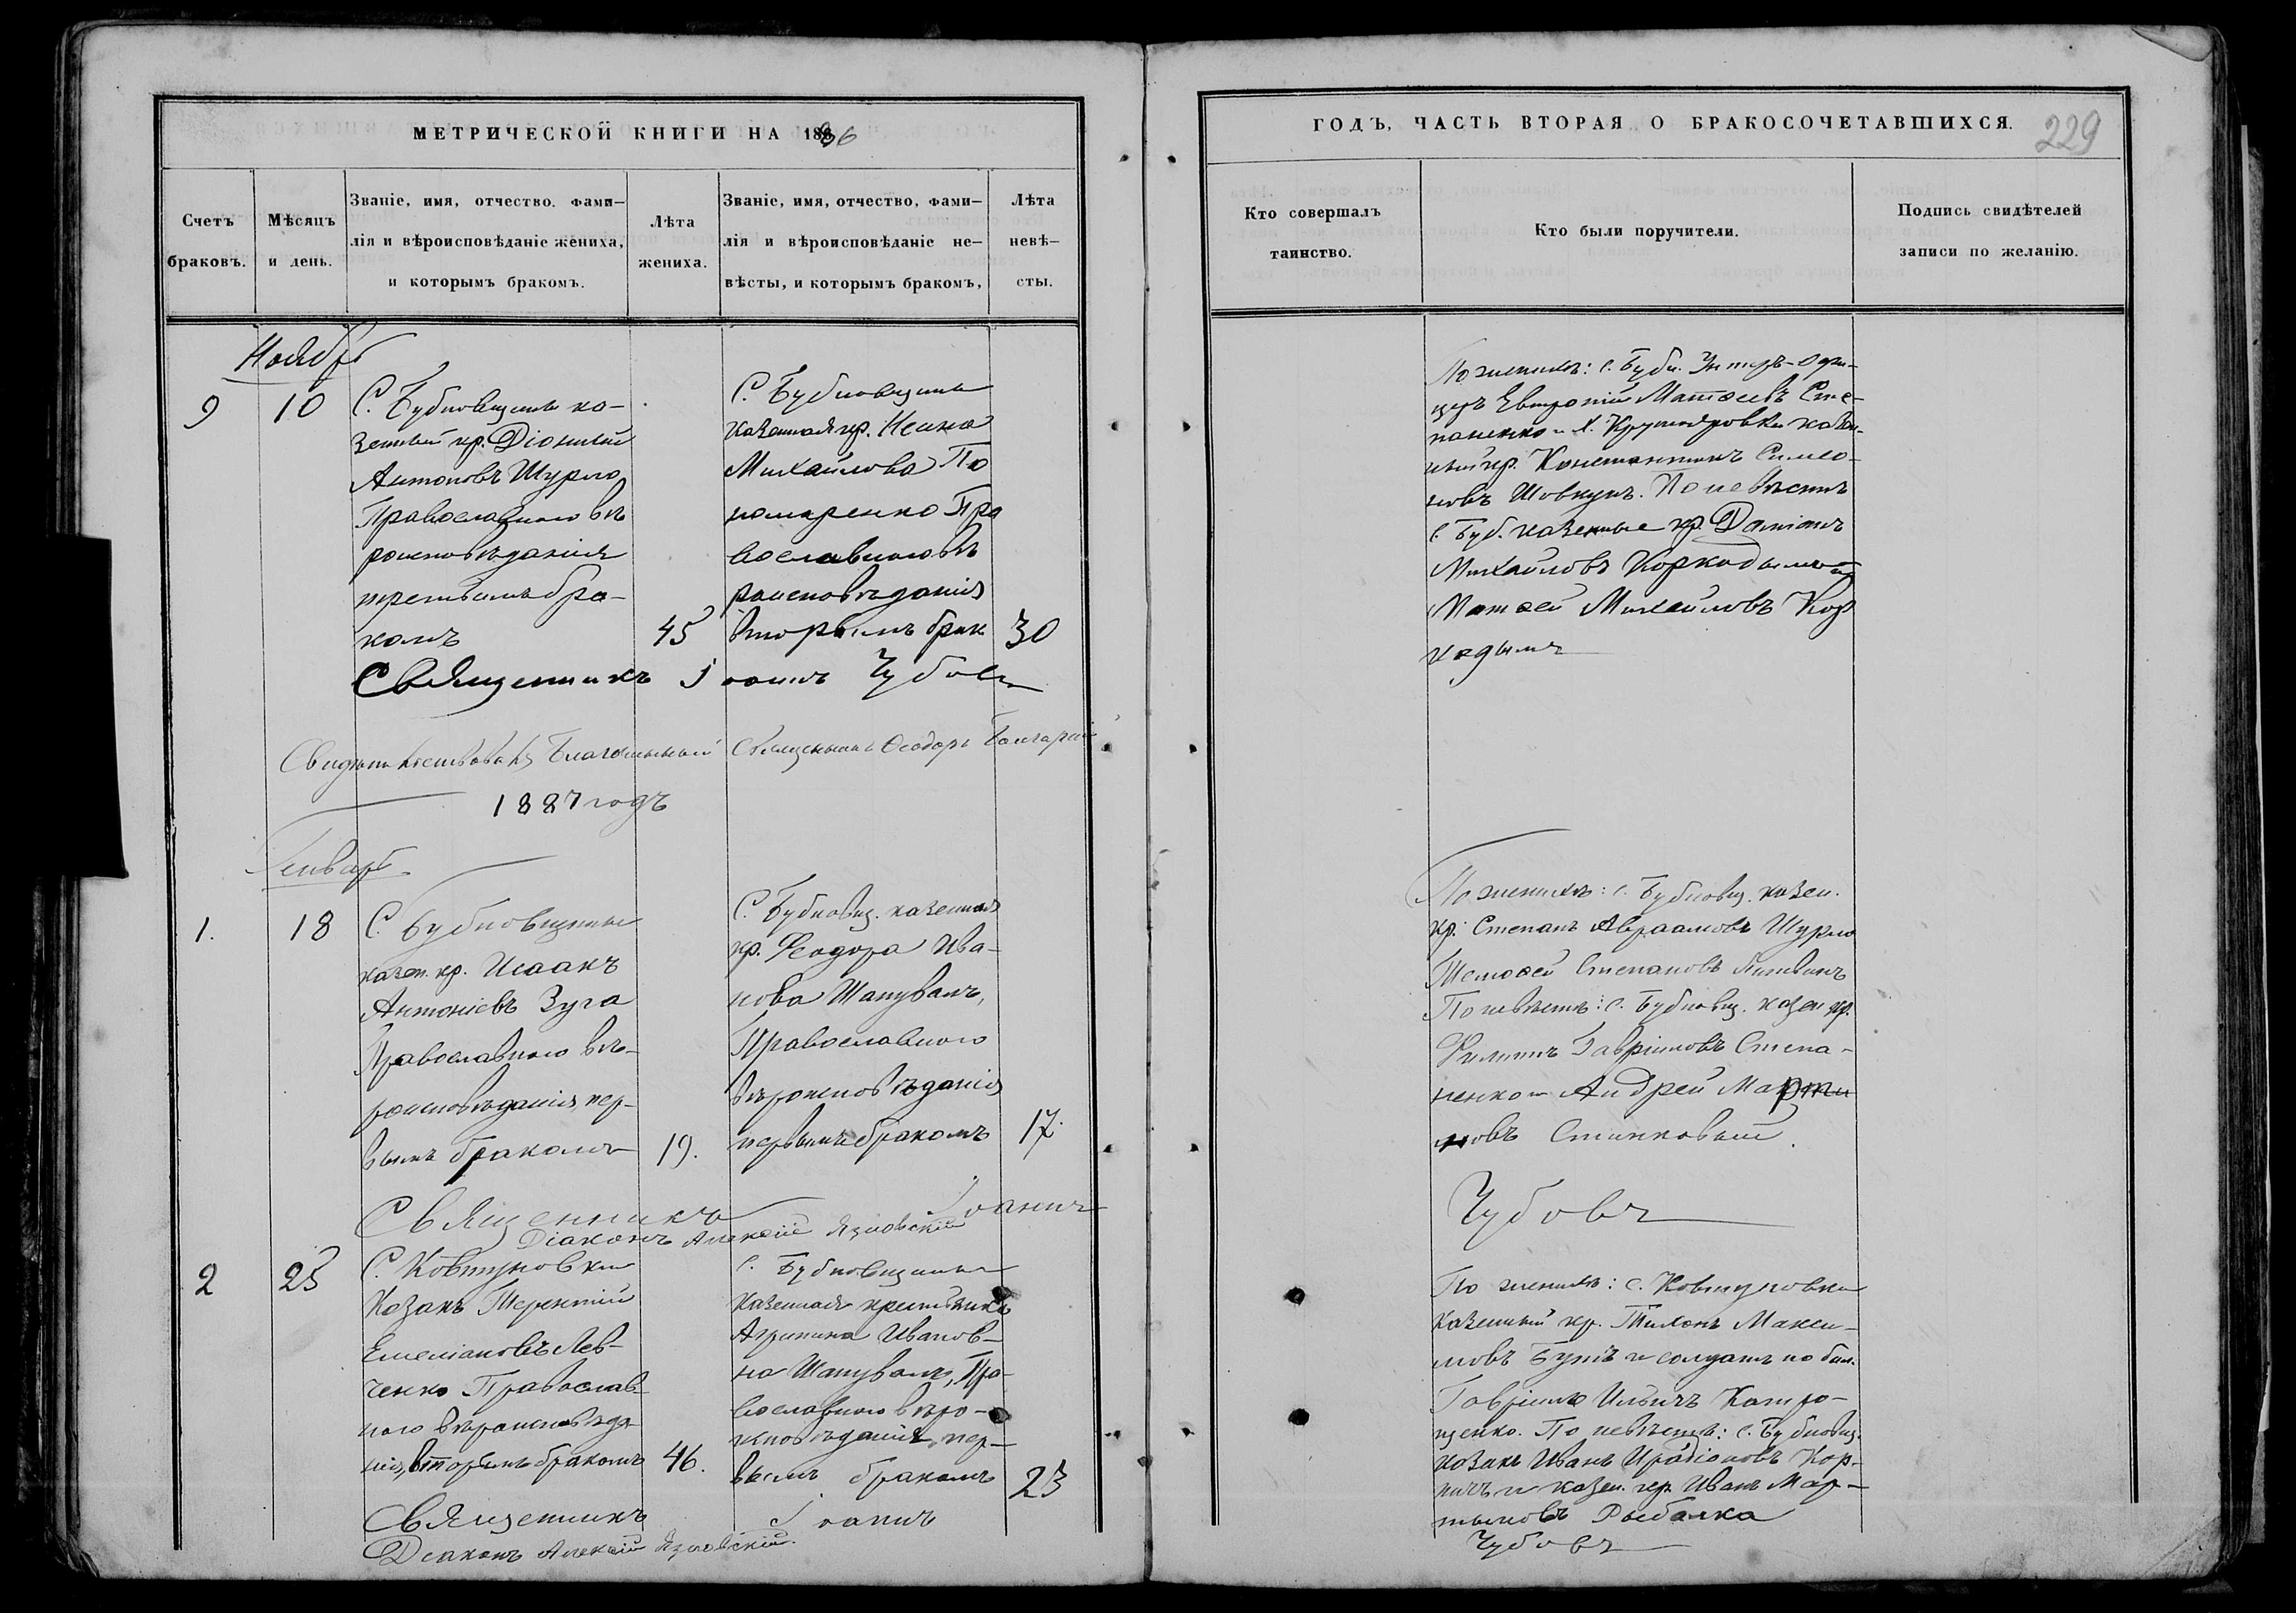 МЕТРИЧЕСКОЙ КНИГИ НА 1886
Счетъ браковъ.
Мѣсяцъ и день.
Званіе, имя, отчество, фами-
лія и вѣроисповѣданіе жениха,
и которымъ бракомъ.
Лѣта жениха.
Званіе, имя, отчество, фами-
лія и вѣроисповѣданіе не-
вѣсты, и которымъ бракомъ,
Лѣта невѣ-
сты.
Ноябрь
9
10
С. Бубновщины ка-
зенный кр. Діонисій
Антоновъ Шурло
Православнаго вѣ
роисповѣданія
третьимъ бра-
комъ
45
С. Бубновщины
казенная кр.
Михайлова По
номаренко Пра
вославнаго вѣ
роисповѣданія
вторымъ брак
30
Священникъ Іоаннъ Чубовъ
Свидѣтельствовалъ Благочинный Священникъ Ѳеодоръ
1887 годъ
Генварь
1.
18
С. Бубновщины
казен. кр. Исаакъ
Антоніевъ Зуга
Православнаго вѣ-
роисповѣданія, пер-
вымъ бракомъ
19.
С. Бубновщ. казенная
кр. Ѳеодора Ива-
нова Шапувалъ,
Православнаго
вѣроисповѣданія
первымъ бракомъ
17.
Священникъ Іоаннъ
Діаконъ Алексій Язловскій
2
25
С. Ковтуновки
Козакъ Терентій
Емеліановъ Лев-
ченко Православ-
наго вѣроисповѣда
нія, вторымъ бракомъ
46.
С. Бубновщины
Казенная крестьянка
Агрипина Иванов-
на Шапувалъ, Пра-
вославнаго вѣро-
исповѣданія, пер-
вымъ бракомъ
23
Священникъ Іоаннъ
Діаконъ Алексій Язловскій.
ГОДЪ, ЧАСТЬ ВТОРАЯ О БРАКОСОЧЕТАВШИХСЯ.
229
Кто совершалъ
таинство.
Кто были поручители.
Подпись свидѣтелей
записи по желанію.
По женихѣ: с. Бубн. Унтеръ-Офи-
церъ Евтропій Матѳеевъ Сте-
паненко и х. Крутояровки казен-
ный кр. Константинъ Симео-
новъ Шовкунъ. По невѣстѣ
с. Буб. казенные кр. Даміанъ
Михайловъ Коркодымъ и
Матѳей Михайловъ Кор
кодымъ
По женихѣ: с. Бубновщ. казен.
кр. Степанъ Авраамовъ Шурло
Тимоѳей Степановъ Литвинъ
По невѣстѣ: с. Бубновщ. казен кр.
Филиппъ Гавріиловъ Степа-
ненко и Андрей Марти
новъ
Чубовъ
По женихѣ: с. Ковтуновки
казенный кр. Тихонъ Макси-
мовъ Бутъ и солдатъ по бил.
Гавріилъ Ильичъ Катро-
щенко. По невѣстѣ: с. Бубновщ.
козакъ Иванъ Иродіоновъ Кор-
ничъ и казен. кр. Иванъ Мар-
тыновъ Рыбалка
Чубовъ